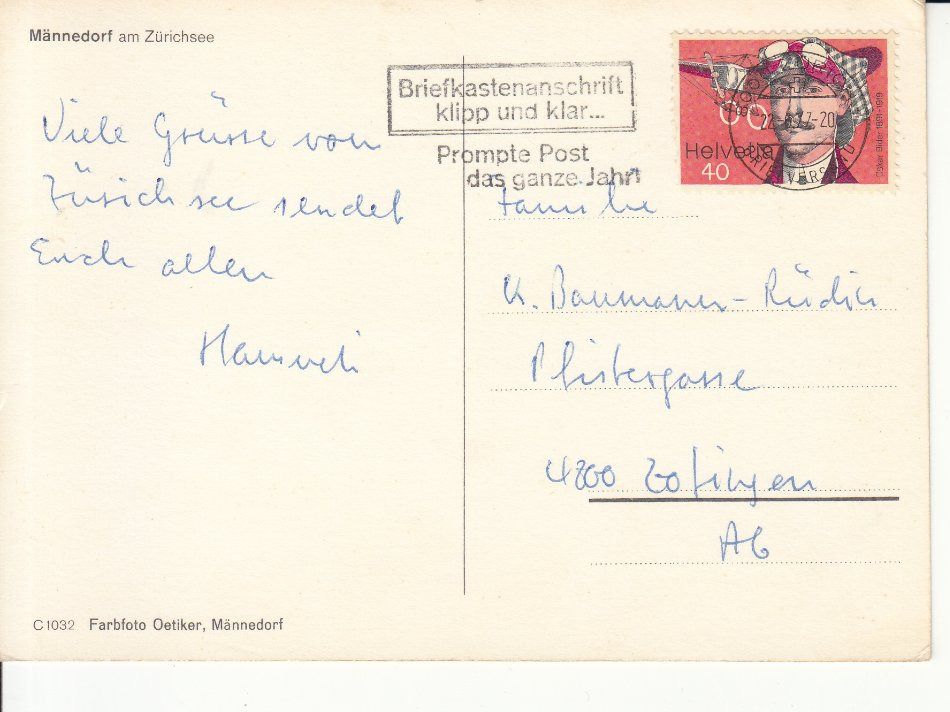 Männedorf am Zürichsee
Briefkastenanschrift
klipp und klar...
Prompte Post
das ganze Jahr
Helvetia
40
Oskar Bider 1891-1919
BRIEFVERSAND
Viele Grüsse von
Zürichsee sendet
Euch allen
Hansueli
Familie
K. Baumann-Rüdin
Pfistergasse
4800 Zofingen
AG
C1032 Farbfoto Oetiker, Männedorf